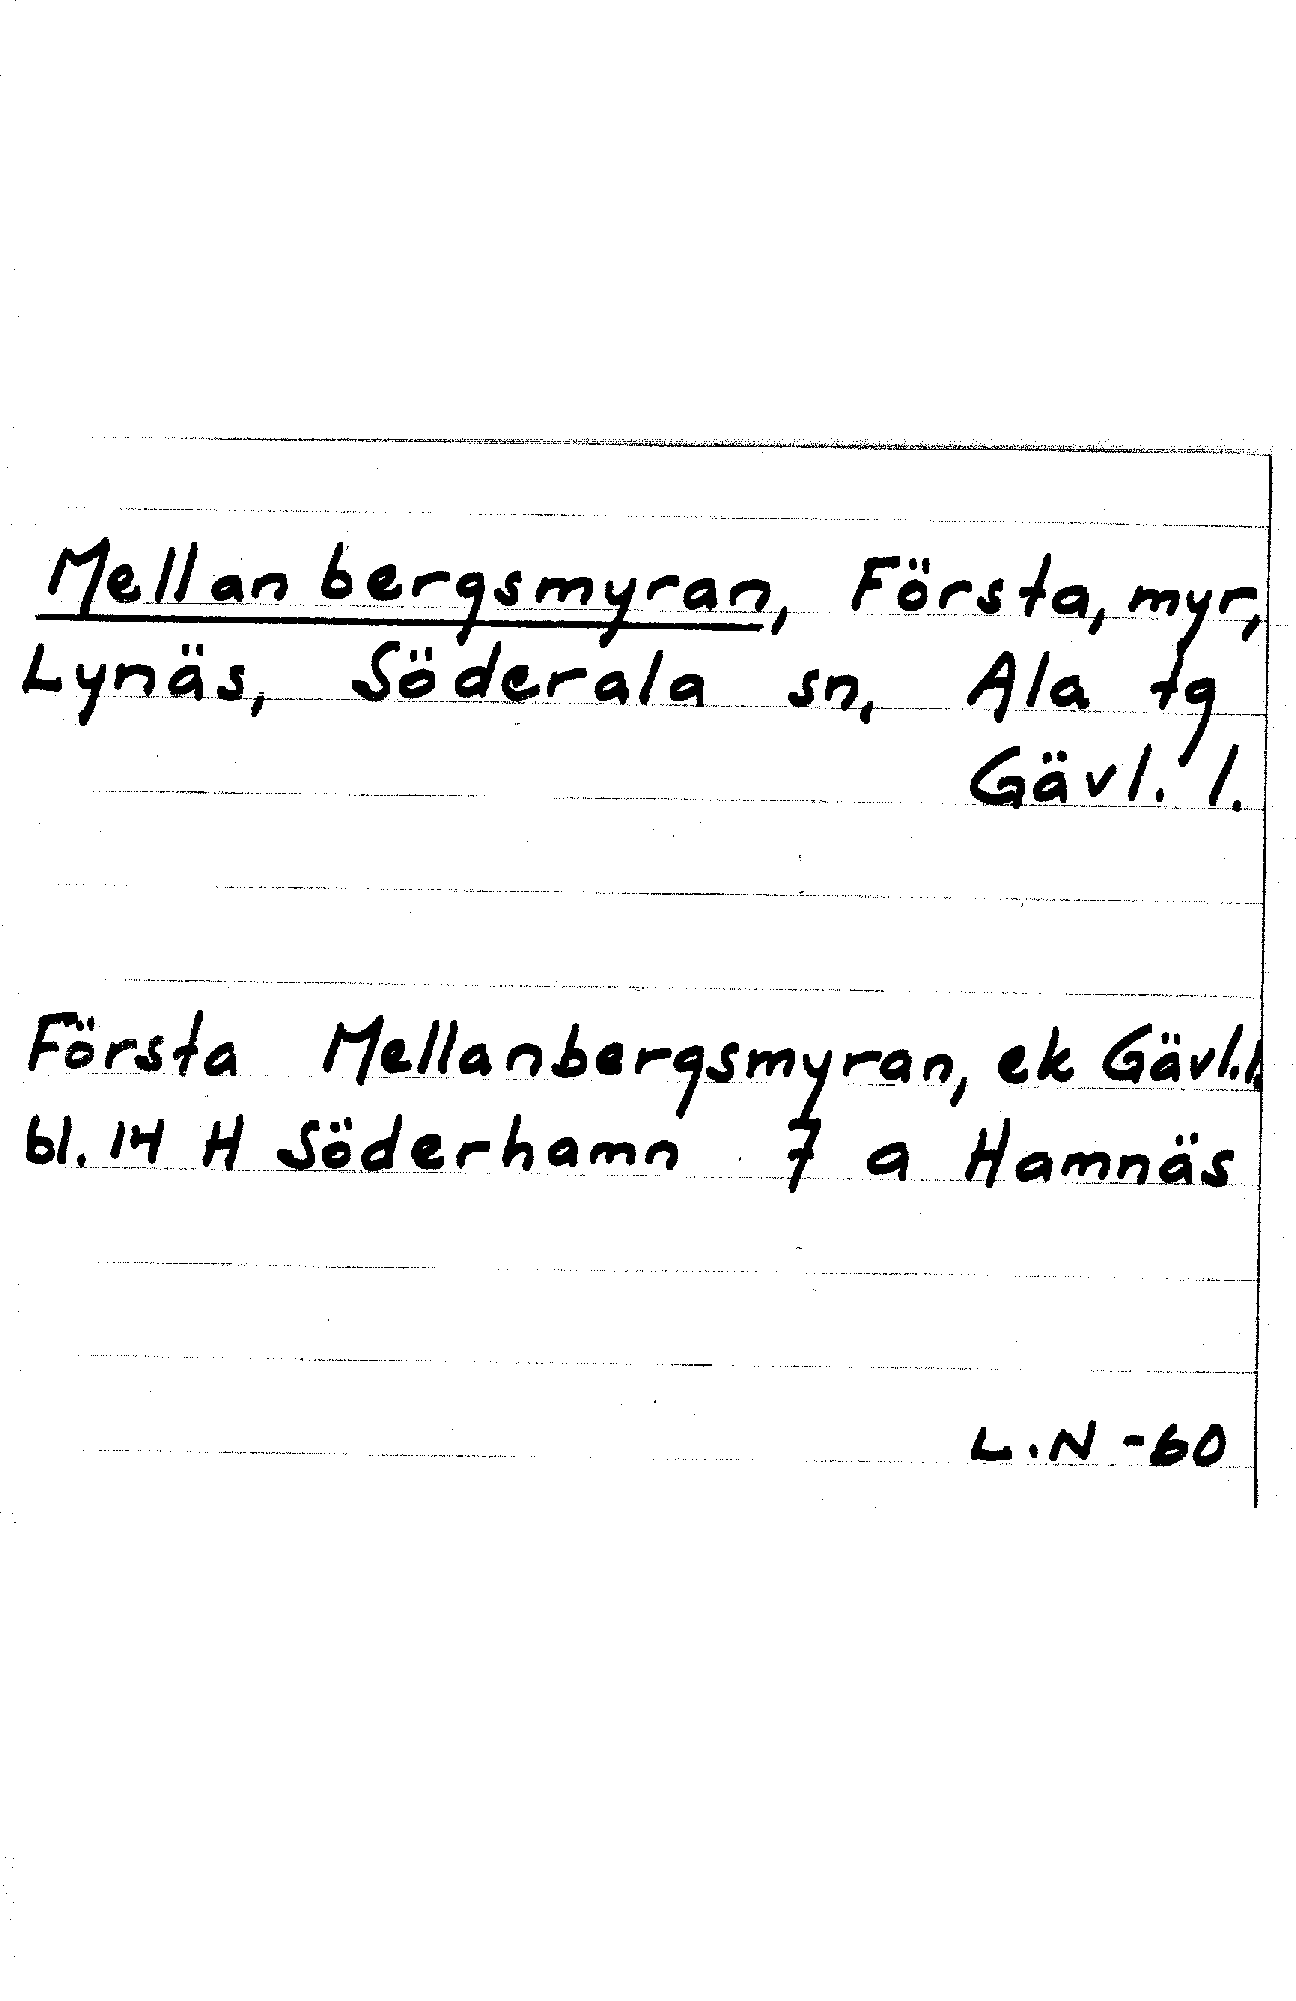 Mellanbergsmyran, Första, myr,
Lynäs, Söderala sn, Ala tg
Gävl. l.
Första Mellanbergsmyran, ek Gävl.l.
bl. 14 H Söderhamn 7 a Hamnäs
L.N -60